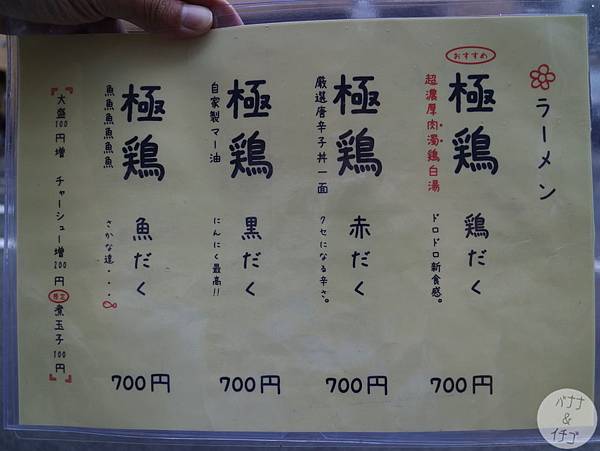 ラーメン
おすすめ
極鶏
超濃厚肉濁鶏白湯
鶏だく
ドロドロ新食感。
700円
極鶏
厳選唐辛子丼一面
赤だく
クセになる辛さ。
700円
極鶏
自家製マー油
黒だく
にんにく最高!!
700円
極鶏
魚魚魚魚魚魚
魚だく
さかな達・・・
700円
大盛100円増 チャーシュー増200円 煮玉子100円
バナナ
&
イチゴ